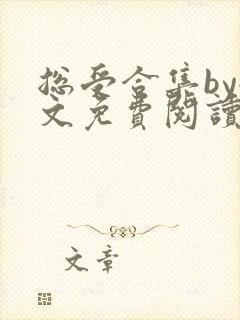 总受合集by
文免費閱讀
文章